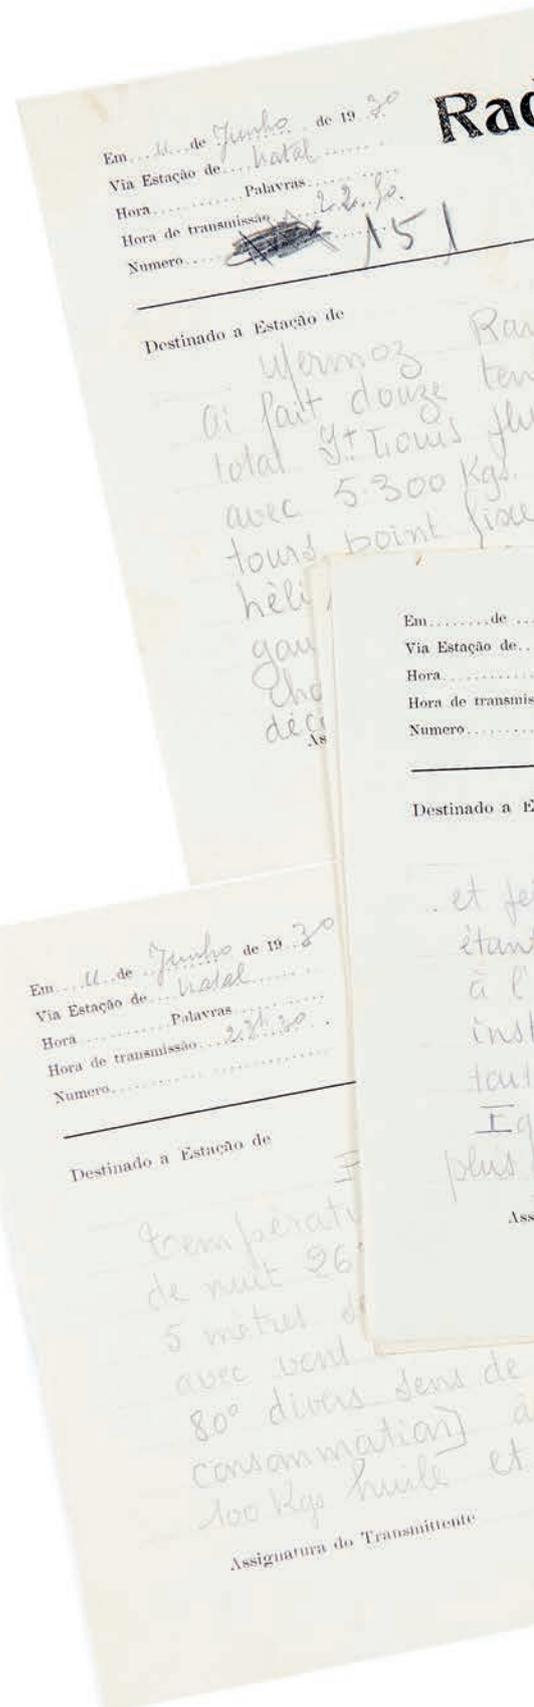 Rad
Em .... 11 .. de Junho de 19 30
Via Estação de .... Natal
Hora .......... Palavras
Hora de transmissão 22.30.
Numero .... 151
Destinado a Estação de
Mermoz
ai fait douze ten
total St Louis
avec 5.300 Kgs.
tours point fixe
héli
gau
cho
déci
As
Em ........ de ...
Via Estação de ..
Hora
Hora de transmis
Numero
Destinado a E
.. et
étant
à l'
inst
tout
plus
Ass
Em .... 11 .. de Junho de 19 30
Via Estação de .... Natal
Hora .......... Palavras
Hora de transmissão
Numero
Destinado a Estação de
températ
de nuit 26°
5 mètres
avec vent
80° divers sens de
consommation] a
100 Kgs huile et
Assignatura do Transmittente